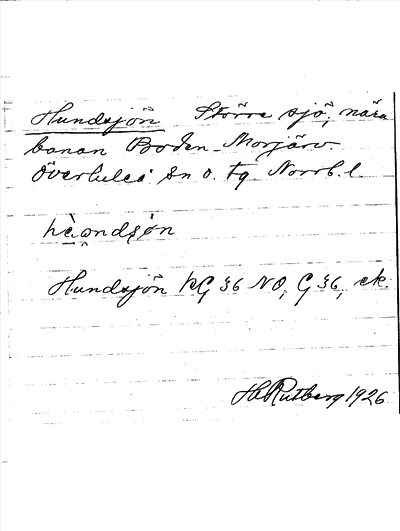 Hundsjön Större sjö, nära
banan Boden-Morjärv.
Överluleå sn o. tg. Norrb. l
Hundsjön kG 36 NO, G 36, ek.
H. Rutberg 1926